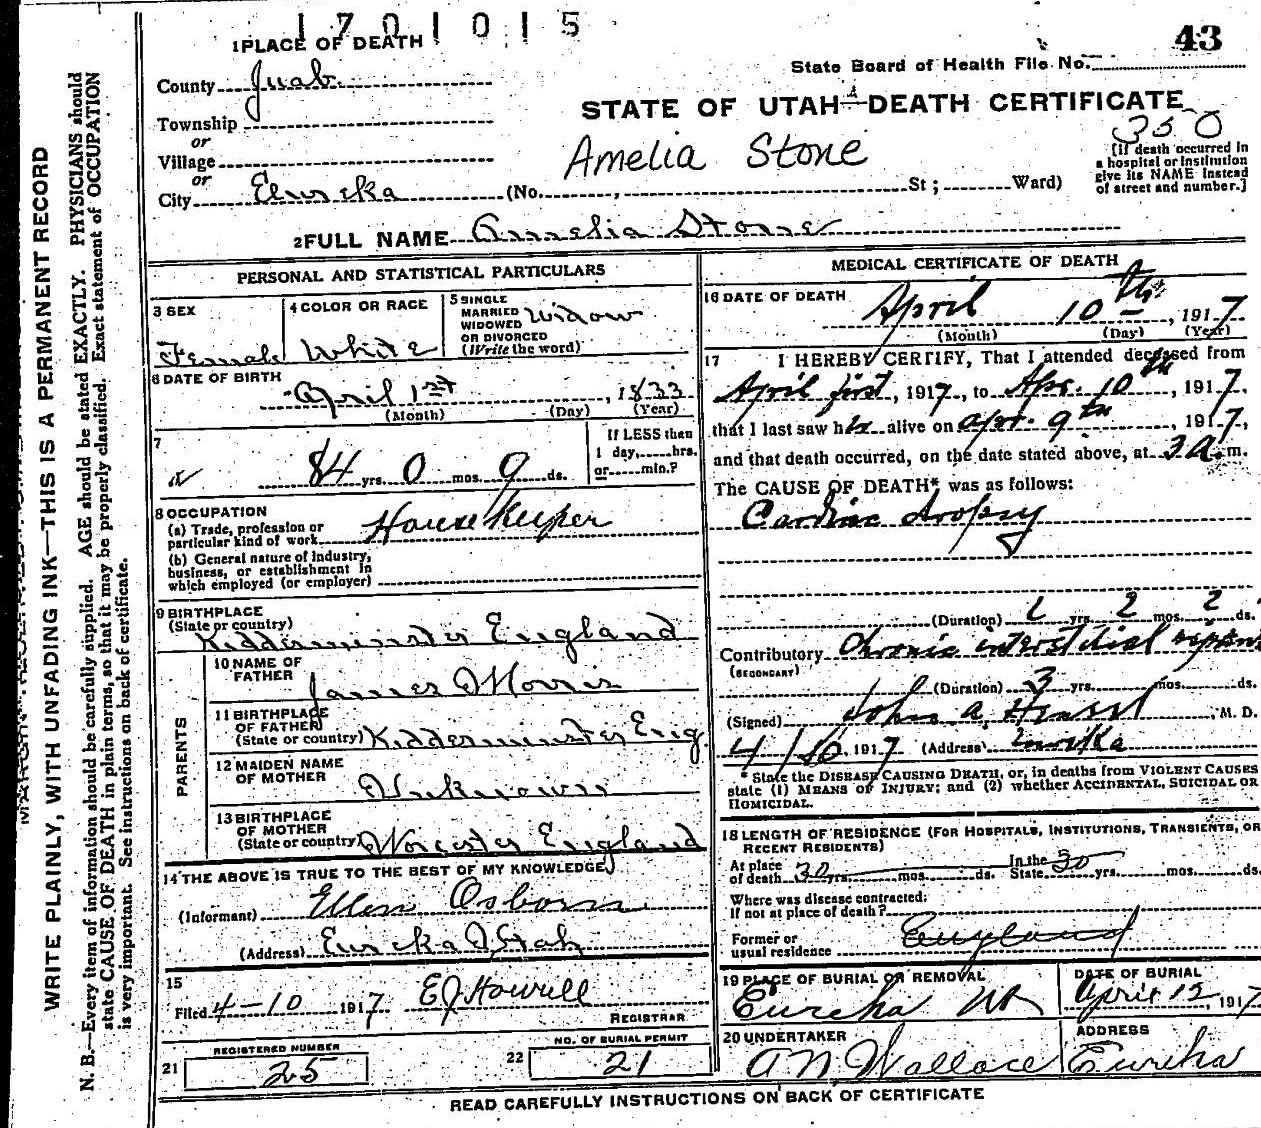 1701015
43
1 PLACE OF DEATH
State Board of Health File No.
County Juab
STATE OF UTAH—DEATH CERTIFICATE
Township
or
Village
or
City Eureka (No. , St ; Ward)
Amelia Stone
350
[If death occurred in
a hospital or institution
give its NAME instead
of street and number.]
2 FULL NAME Amelia Stone
PERSONAL AND STATISTICAL PARTICULARS
3 SEX
Female
4 COLOR OR RACE
White
5 SINGLE
MARRIED
WIDOWED
OR DIVORCED
(Write the word)
Widow
6 DATE OF BIRTH
April 1st , 1833
(Month) (Day) (Year)
7
84 yrs. 0 mos. 9 ds.
If LESS than
1 day, hrs.
or min.?
8 OCCUPATION
(a) Trade, profession or
particular kind of work House Keeper
(b) General nature of industry,
business, or establishment in
which employed (or employer)
9 BIRTHPLACE
(State or country)
Kidderminster England
PARENTS
10 NAME OF
FATHER
James Morris
11 BIRTHPLACE
OF FATHER
(State or country) Kidderminster Eng.
12 MAIDEN NAME
OF MOTHER
Unknown
13 BIRTHPLACE
OF MOTHER
(State or country) Worcester England
14 THE ABOVE IS TRUE TO THE BEST OF MY KNOWLEDGE
(Informant) Ellen Osborn
(Address) Eureka Utah
15
Filed 4-10 1917 E J Howell
REGISTRAR
21 REGISTERED NUMBER
25
22 NO. OF BURIAL PERMIT
21
MEDICAL CERTIFICATE OF DEATH
16 DATE OF DEATH
April 10th , 1917
(Month) (Day) (Year)
17 I HEREBY CERTIFY, That I attended deceased from
April first, 1917, to Apr. 10th, 1917,
that I last saw her alive on Apr. 9th, 1917,
and that death occurred, on the date stated above, at 3 a. m.
The CAUSE OF DEATH* was as follows:
Cardiac dropsy
(Duration) yrs. 2 mos. 2 ds.
Contributory Chronic interstitial
(SECONDARY)
(Duration) 3 yrs. mos. ds.
(Signed) John A. , M. D.
4/10, 1917 (Address) Eureka
* State the DISEASE CAUSING DEATH, or, in deaths from VIOLENT CAUSES
state (1) MEANS OF INJURY; and (2) whether ACCIDENTAL, SUICIDAL OR
HOMICIDAL.
18 LENGTH OF RESIDENCE (FOR HOSPITALS, INSTITUTIONS, TRANSIENTS, OR
RECENT RESIDENTS)
At place
of death 30 yrs. mos. ds. In the State 30 yrs. mos. ds.
Where was disease contracted;
If not at place of death?
Former or
usual residence England
19 PLACE OF BURIAL OR REMOVAL
Eureka Ut
DATE OF BURIAL
April 12, 1917
20 UNDERTAKER
A N Wallace
ADDRESS
Eureka
READ CAREFULLY INSTRUCTIONS ON BACK OF CERTIFICATE
WRITE PLAINLY, WITH UNFADING INK—THIS IS A PERMANENT RECORD
N. B.—Every item of information should be carefully supplied. AGE should be stated EXACTLY. PHYSICIANS should
state CAUSE OF DEATH in plain terms, so that it may be properly classified. Exact statement of OCCUPATION
is very important. See instructions on back of certificate.